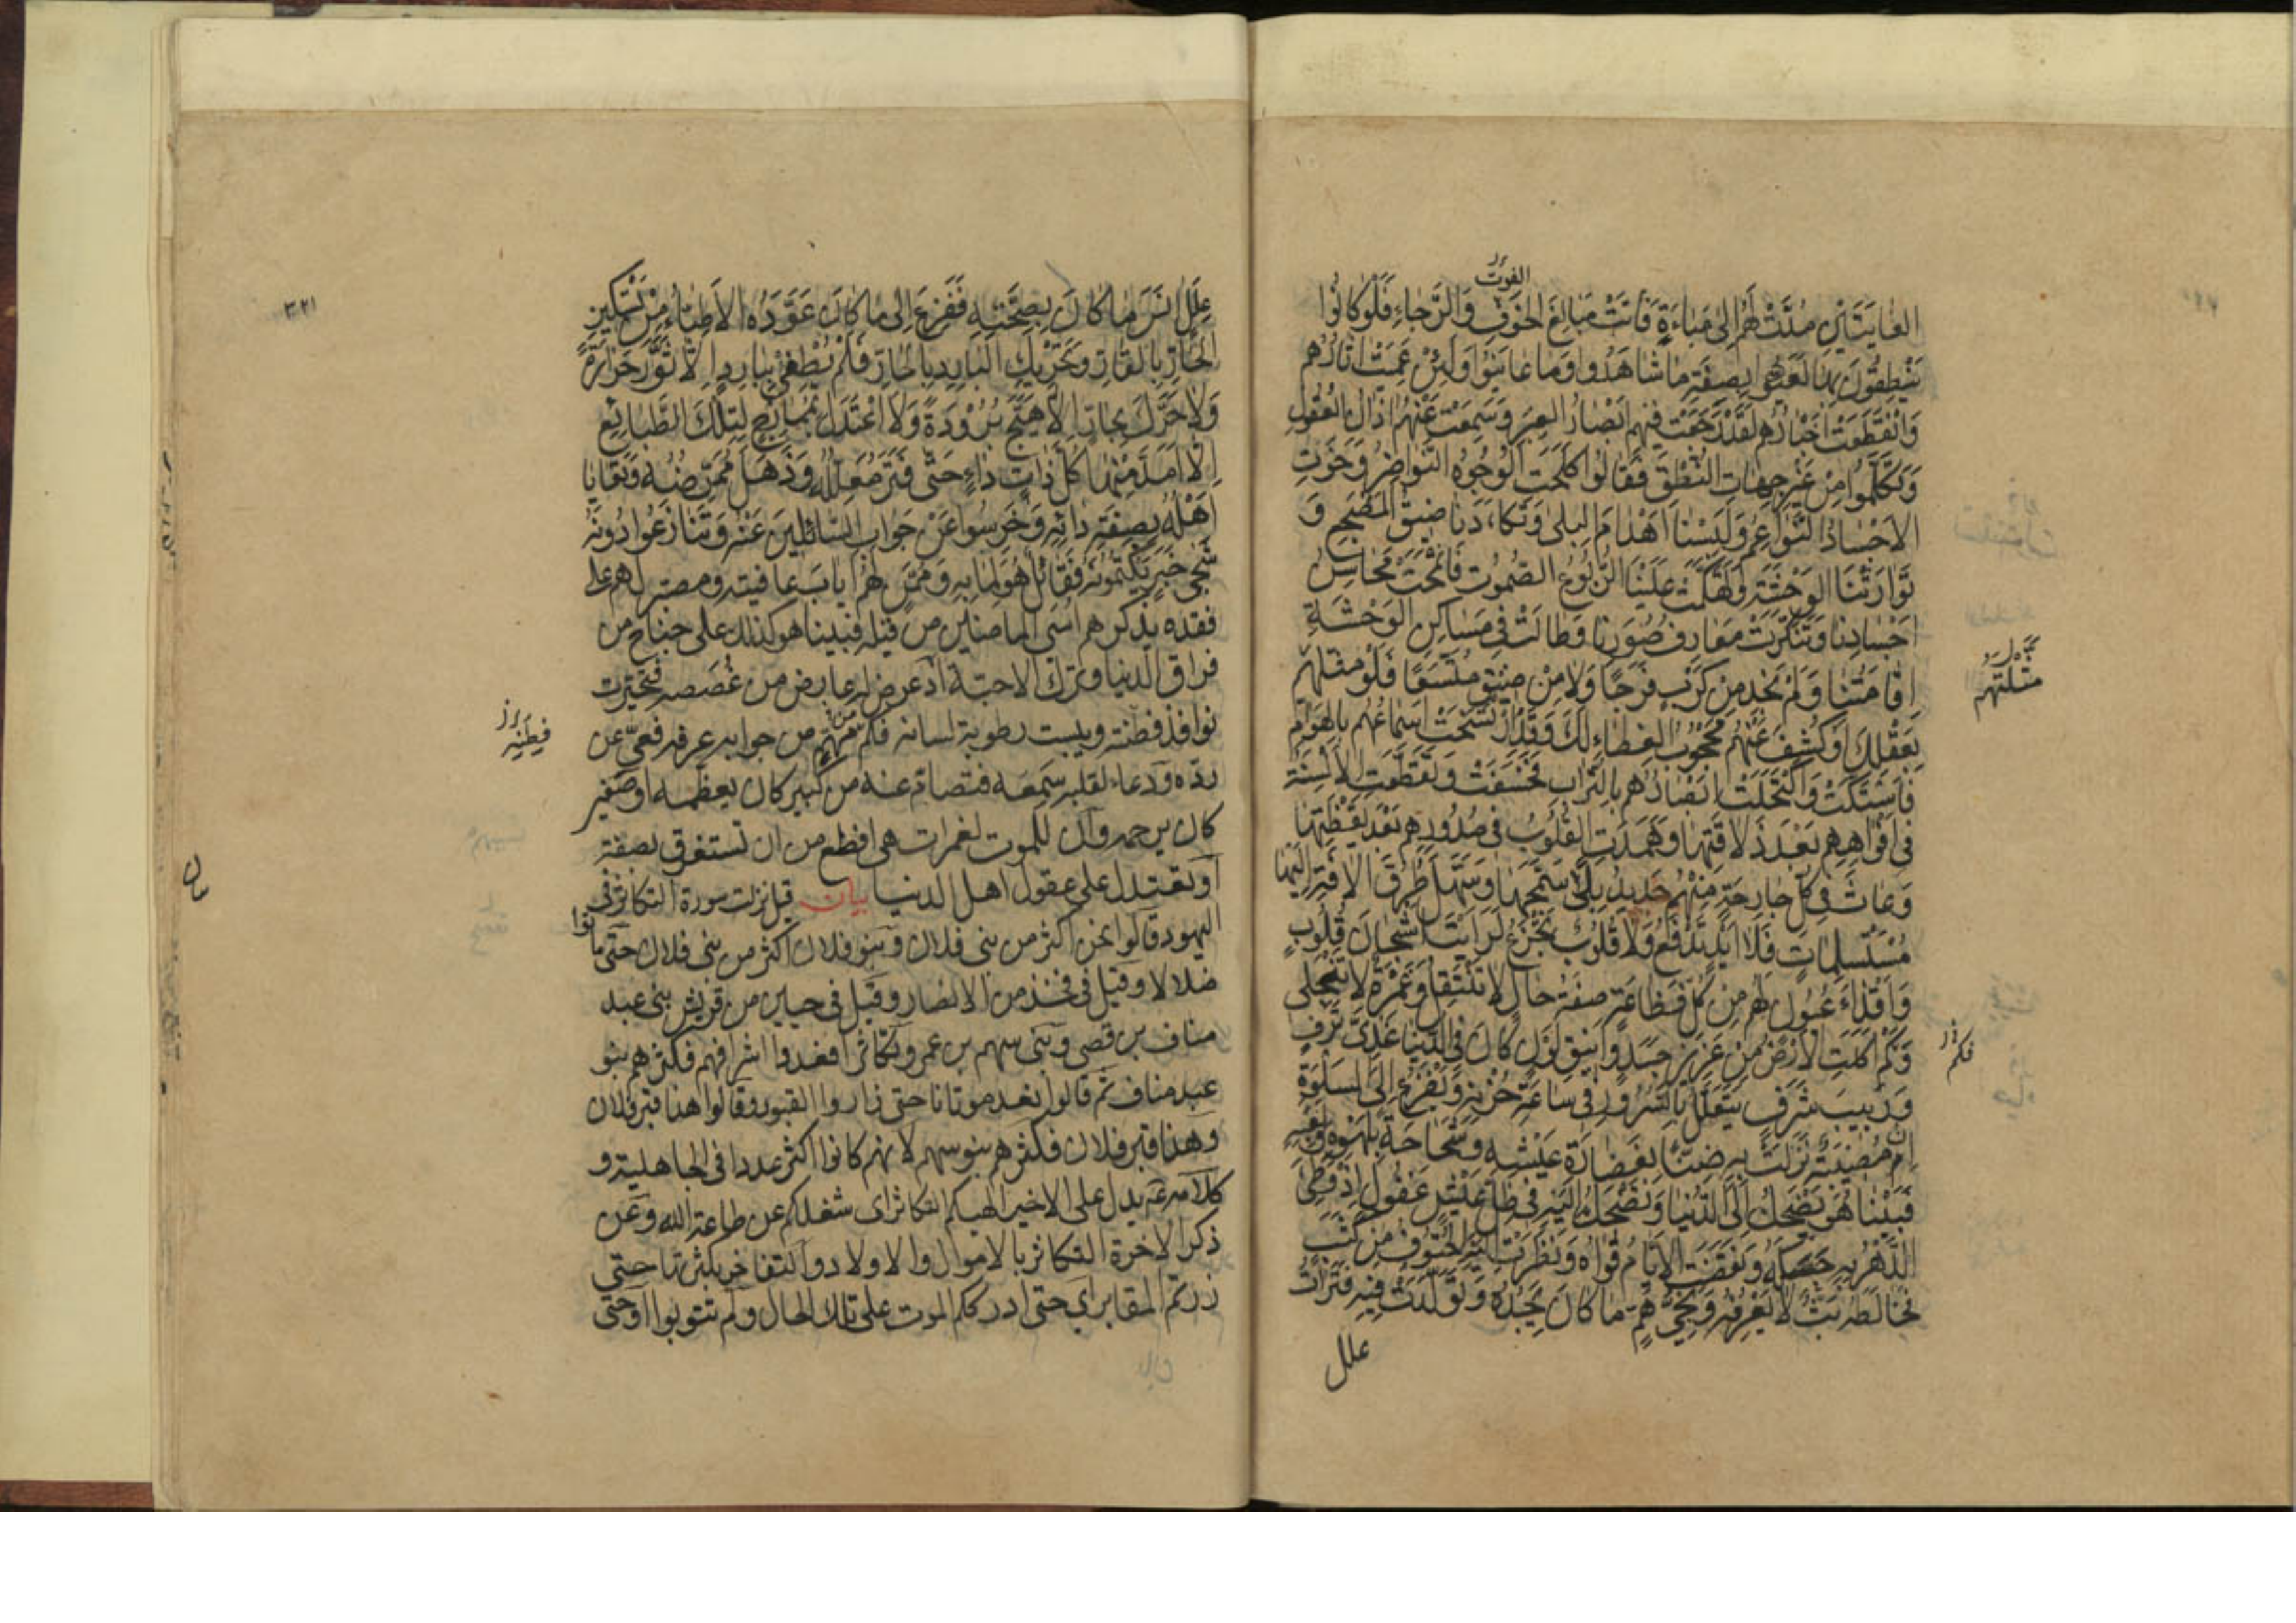 الفوت
الغايتين مدت لهم الى مباءة فاتت مبالغ الخوف والرجاء فلو كانوا
ينطقون بها لعيوا بصفة ما شاهدوا وما عاينوا ولئن عميت اثارهم
وانقطعت اخبارهم لقد رجعت فيهم ابصار العبر وسمعت عنهم اذان العقول
وتكلموا من غير جهات النطق فقالوا كلحت الوجوه النواضر وخوت
الاجساد النواعم ولبسنا اهدام البلى وتكاءدنا ضيق المضجع و
توارثنا الوحشة وتهكمت علينا الربوع الصموت فانمحت محاسن
اجسادنا وتنكرت معارف صورنا وطالت في مساكن الوحشة
اقامتنا ولم نجد من كرب فرجا ولا من ضيق متسعا فلو مثلتهم
مثلتهم
بعقلك او كشف عنهم محجوب الغطاء لك وقد ارتسخت اسماعهم بالهوام
فاستكت واكتحلت ابصارهم بالتراب فخسفت وتقطعت الالسنة
في افواههم بعد ذلاقتها وهمدت القلوب في صدورهم بعد يقظتها
وعاث في كل جارحة منهم جديد بلى سمجها وسهل طرق الافة اليها
مستسلمات فلا ايد تدفع ولا قلوب تجزع لرايت اشجان قلوب
واقذاء عيون لهم من كل فظاعة صفة حال لا تنتقل وغمرة لا تنجلي
وكم اكلت الارض من عزيز جسد وانيق لون كان في الدنيا غذي ترف
فكم
وربيب شرف يتعلل بالسرور في ساعة حزنه ويفزع الى السلوة
ان مصيبة نزلت به ضنا بغضارة عيشه وشحاحة بلهوه ولعبه
فبينا هو يضحك الى الدنيا وتضحك اليه في ظل عيش غفول اذ وطئ
الدهر به حسكه ونقضت الايام قواه ونظرت اليه الحتوف من كثب
فخالطه بث لا يعرفه ونجي هم ما كان يجده وتولدت فيه فترات
علل
٣٢١
علل انس ما كان بصحته ففزع الى ما كان عوده الاطباء من تسكين
الحار بالقار وتحريك البارد بالحار فلم يطفئ ببارد الا ثور حرارة
ولا حرك بحار الا هيج برودة ولا اعتدل بممازج لتلك الطبايع
الا امد منها كل ذات داء حتى فتر معلله وذهل ممرضه وتعايا
اهله بصفة دائه وخرسوا عن جواب السائلين عنه وتنازعوا دونه
شجي خبر يكتمونه فقائل هو لما به وممن لهم اياب عافيته ومصبر لهم على
فقده يذكرهم اسى الماضين من قبله فبينا هو كذلك على جناح من
فراق الدنيا وترك الاحبة اذ عرض له عارض من غصصه فتحيرت
نوافذ فطنته ويبست رطوبة لسانه فكم من مهم من جوابه عرفه فعي عن
فطنه
رده ودعاء لقلبه سمعه فتصام عنه من كبير كان يعظمه او صغير
كان يرحمه وان للموت لغمرات هي افظع من ان تستغرق بصفة
او تعتدل على عقول اهل الدنيا بيان قيل نزلت سورة التكاثر في
اليهود قالوا نحن اكثر من بني فلان وبنو فلان اكثر من بني فلان حتى ماتوا
ضلالا وقيل في فخذ من الانصار وقيل في حيين من قريش بني عبد
مناف بن قصي وبني سهم بن عمرو تكاثرا فعدوا اشرافهم فكثرهم بنو
عبد مناف ثم قالوا نعد موتانا حتى زاروا القبور وقالوا هذا قبر فلان
وهذا قبر فلان فكثرهم بنو سهم لانهم كانوا اكثر عددا في الجاهلية و
كلامه ع يدل على الاخير الهيكم التكاثر اي شغلكم عن طاعة الله وعن
ذكر الاخرة التكاثر بالاموال والاولاد والتفاخر بكثرتها حتى
زرتم المقابر اي حتى ادرككم الموت على تلك الحال ولم تتوبوا او حتى